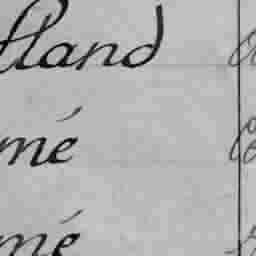 tland
mé
mé